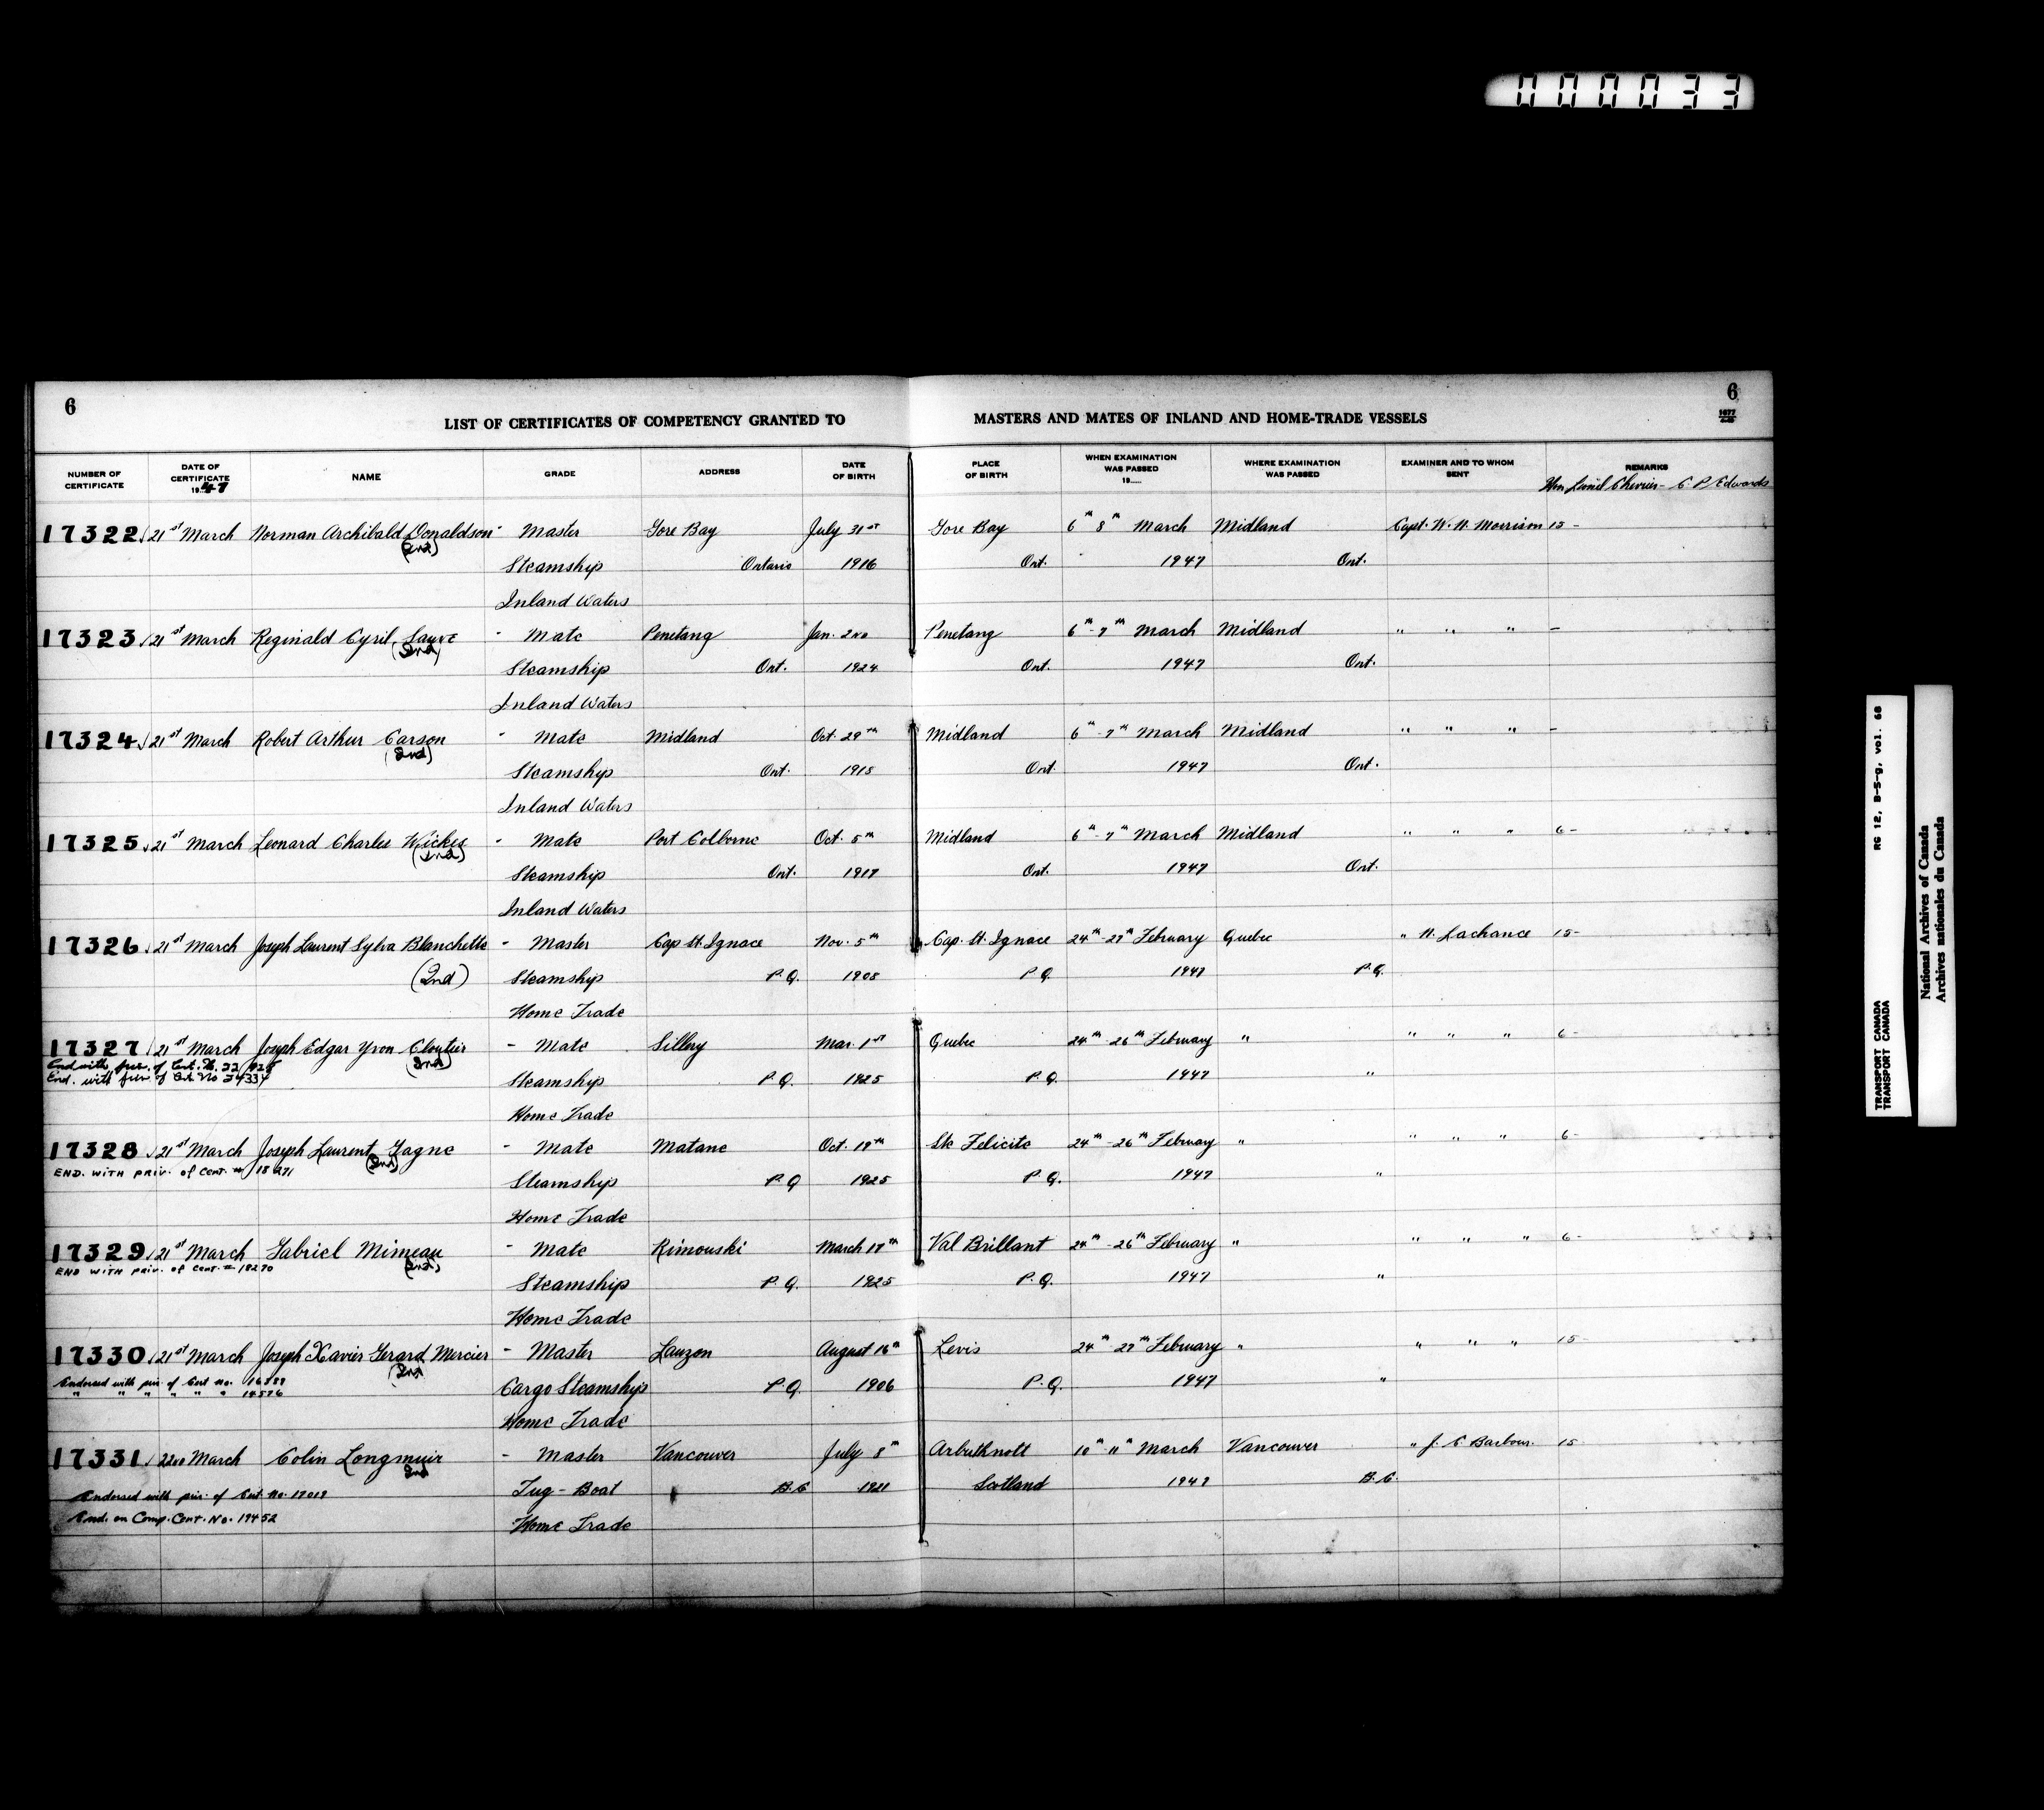 000033
6
6
1677
LIST OF CERTIFICATES OF COMPETENCY GRANTED TO MASTERS AND MATES OF INLAND AND HOME-TRADE VESSELS
NUMBER OF CERTIFICATE DATE OF CERTIFICATE 1947 NAME GRADE ADDRESS DATE OF BIRTH PLACE OF BIRTH WHEN EXAMINATION WAS PASSED 19 WHERE EXAMINATION WAS PASSED EXAMINER AND TO WHOM SENT REMARKS
Hon Lionel Chevrier - C. P. Edwards
17322 21st March Norman Archibald Donaldson - Master Gore Bay July 31st Gore Bay 6th 8th March Midland Capt. W. H. Morrison 15 -
(2nd) Steamship Ontario 1916 Ont. 1947 Ont.
Inland Waters
17323 21st March Reginald Cyril Sauve - Mate Penetang Jan. 2nd Penetang 6th - 7th March Midland " " " -
(2nd) Steamship Ont. 1924 Ont. 1947 Ont.
Inland Waters
17324 21st March Robert Arthur Carson - Mate Midland Oct. 29th Midland 6th - 7th March Midland " " " -
(2nd) Steamship Ont. 1915 Ont. 1947 Ont.
Inland Waters
17325 21st March Leonard Charles Wickes - Mate Port Colborne Oct. 5th Midland 6th - 7th March Midland " " " 6 -
(2nd) Steamship Ont. 1917 Ont. 1947 Ont.
Inland Waters
17326 21st March Joseph Laurent Sylva Blanchette - Master Cap St. Ignace Nov. 5th Cap. St. Ignace 24th - 27th February Quebec " H. Lachance 15 -
(2nd) Steamship P.Q. 1908 P.Q. 1947 P.Q.
Home Trade
17327 21st March Joseph Edgar Yvon Cloutier - Mate Sillery Mar. 1st Quebec 24th - 26th February " " " " 6 -
End with priv. of Cert. No.
(2nd)
End. with priv. of Cert. No 24334 Steamship P.Q. 1925 P.Q. 1947 "
Home Trade
17328 21st March Joseph Laurent Gagne - Mate Matane Oct. 19th Ste Felicite 24th - 26th February " " " " 6 -
END. WITH PRIV. of Cert. # 18271 (2nd) Steamship P.Q 1925 P.Q. 1947 "
Home Trade
17329 21st March Gabriel Mimeau - Mate Rimouski March 17th Val Brillant 24th - 26th February " " " " 6 -
END WITH PRIV. of Cert. # 18270 (2nd) Steamship P.Q. 1925 P.Q. 1947 "
Home Trade
17330 21st March Joseph Xavier Gerard Mercier - Master Lauzon August 16th Levis 24th - 27th February " " " " 15 -
(2nd)
Endorsed with priv. of Cert no. Cargo Steamship P.Q. 1906 P.Q. 1947 "
" " " " " " 14576
Home Trade
17331 22nd March Colin Longmuir - Master Vancouver July 8th Arbuthnott 10th - 11th March Vancouver " J. C Barbour. 15
2nd
Endorsed with priv. of Cert. No. 17019 Tug - Boat B.C 1921 Scotland 1947 B.C.
End. on Comp. Cert. No. 19452 Home Trade
RG 12, B-5-g, vol. 68
TRANSPORT CANADA
TRANSPORT CANADA
National Archives of Canada
Archives nationales du Canada